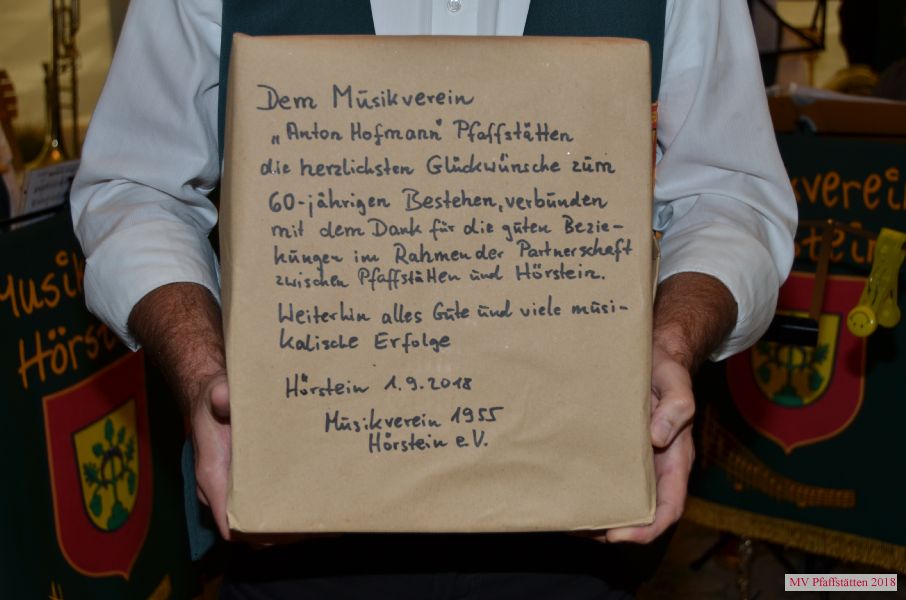 Dem Musikverein
„Anton Hofmann" Pfaffstätten
die herzlichsten Glückwünsche zum
60-jährigen Bestehen, verbunden
mit dem Dank für die guten Bezie-
hungen im Rahmen der Partnerschaft
zwischen Pfaffstätten und Hörstein.
Weiterhin alles Gute und viele musi-
kalische Erfolge
Hörstein 1.9.2018
Musikverein 1955
Hörstein e.V.
Musik
Hörst
kverein
stein
MV Pfaffstätten 2018